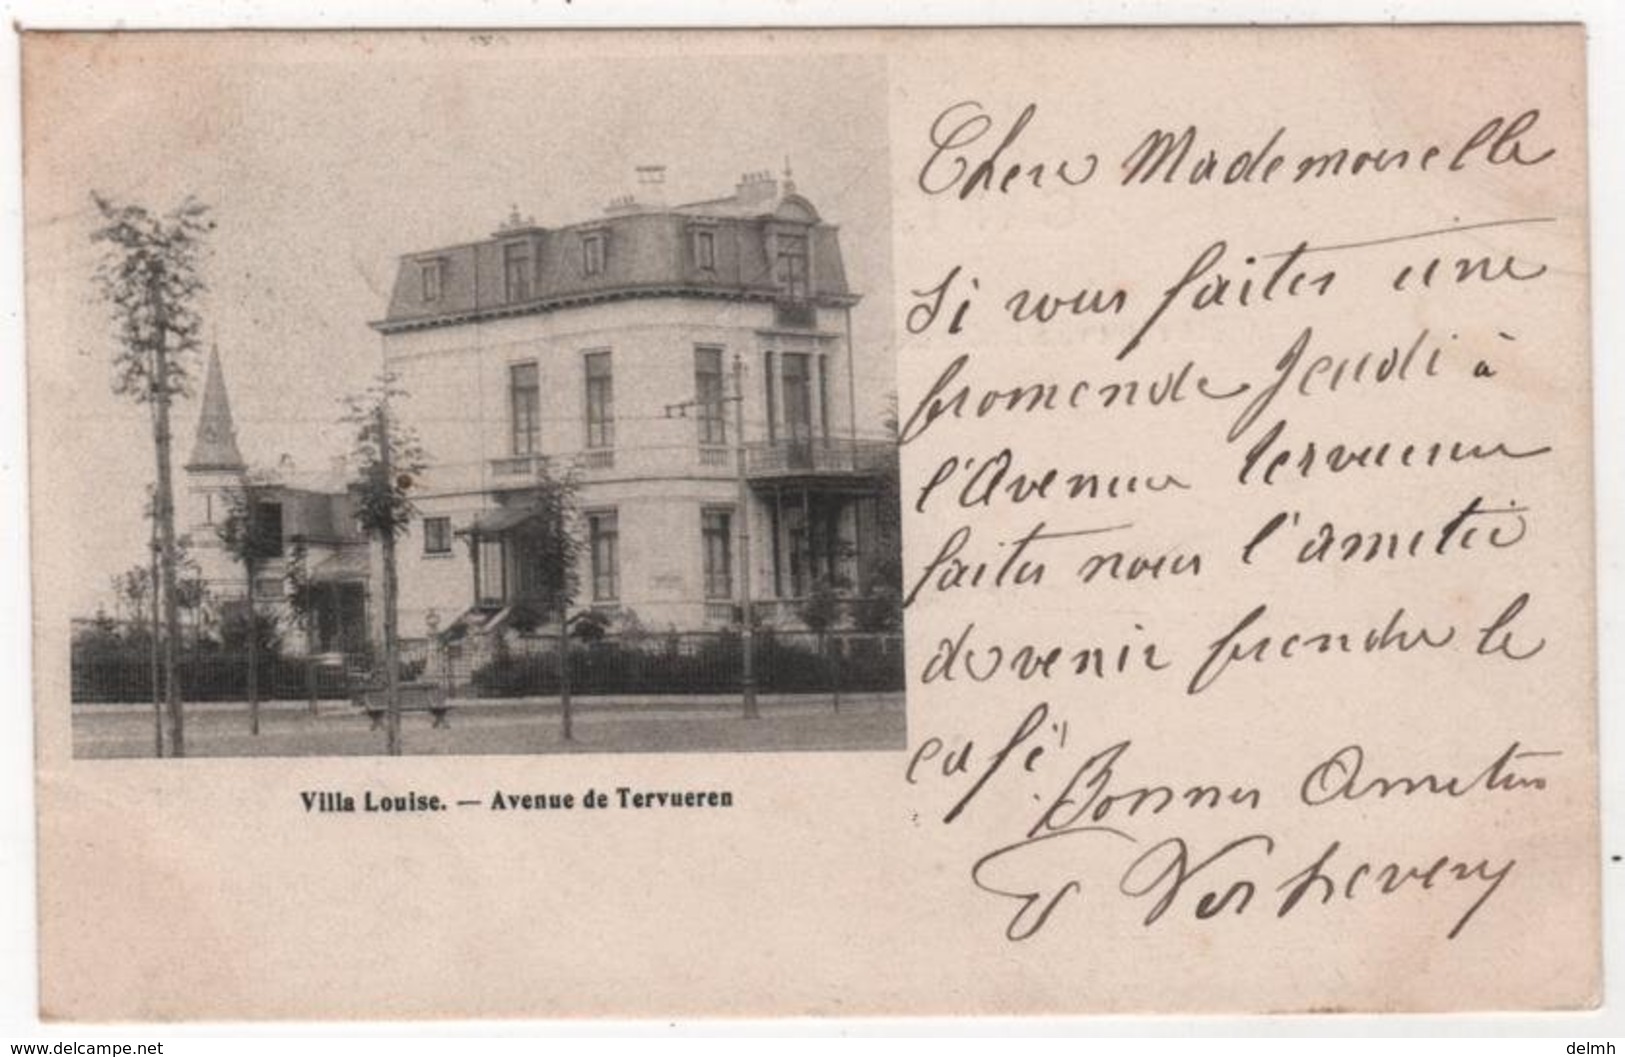 Chere Mademoiselle
Si vous faites une
promende Jeudi à
l'Avenue Tervueren
faites nous l'ametié
de venir prendre le
café
Bonnes Ametiés
Villa Louise. — Avenue de Tervueren
www.delcampe.net
delmh